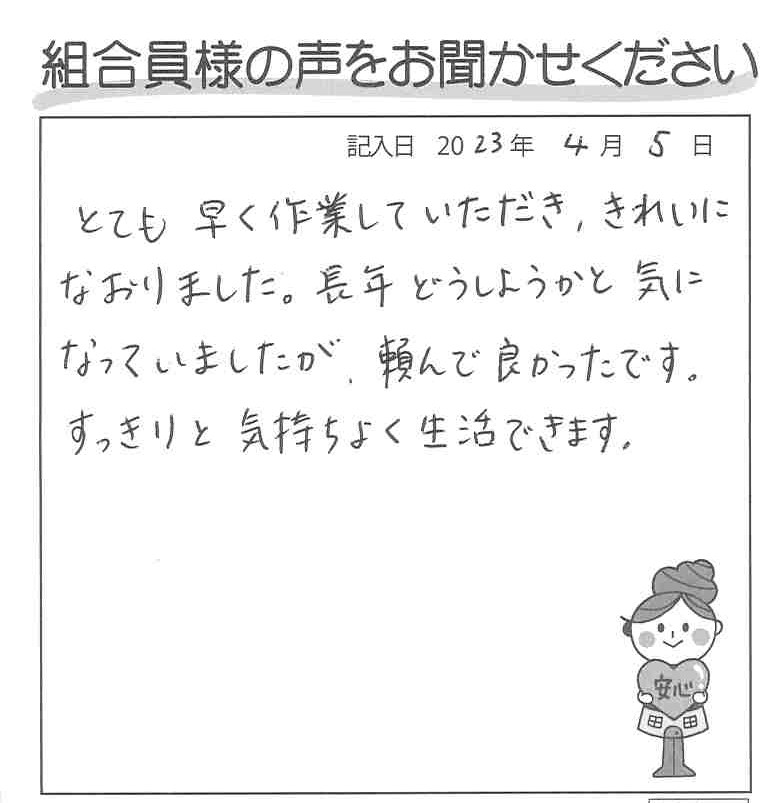 組合員様の声をお聞かせください
記入日 2023年 4月 5日
とても 早く作業していただき, きれいに
なおりました。長年 どうしようかと 気に
なっていましたが、頼んで 良かったです。
すっきりと 気持ちよく生活できます.
安心